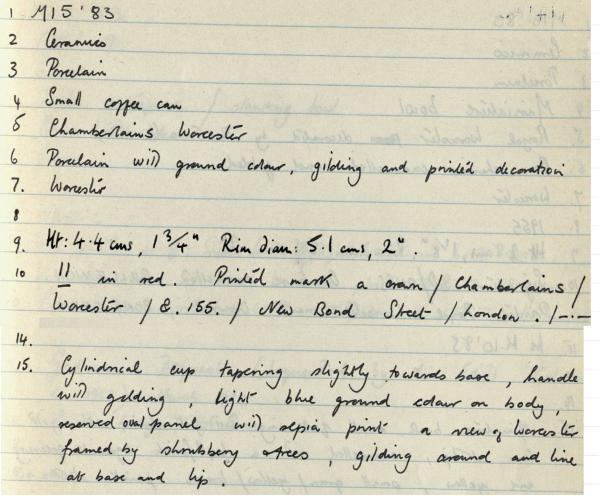 1 M15'83
2 Ceramics
3 Porcelain
4 Small coffee can
5 Chamberlains Worcester
6 Porcelain with ground colour, gilding and printed decoration
7. Worcester
8
9. Ht: 4.4 cms, 1 3/4" Rim diam: 5.1 cms, 2".
10 11 in red. Printed mark a crown / Chamberlains /
Worcester / &. 155. / New Bond Street / London. /-·-
14.
15. Cylindrical cup tapering slightly towards base, handle
with gilding, light blue ground colour on body,
reserved oval panel with sepia print a view of Worcester
framed by shrubbery & trees, gilding around and line
at base and lip.